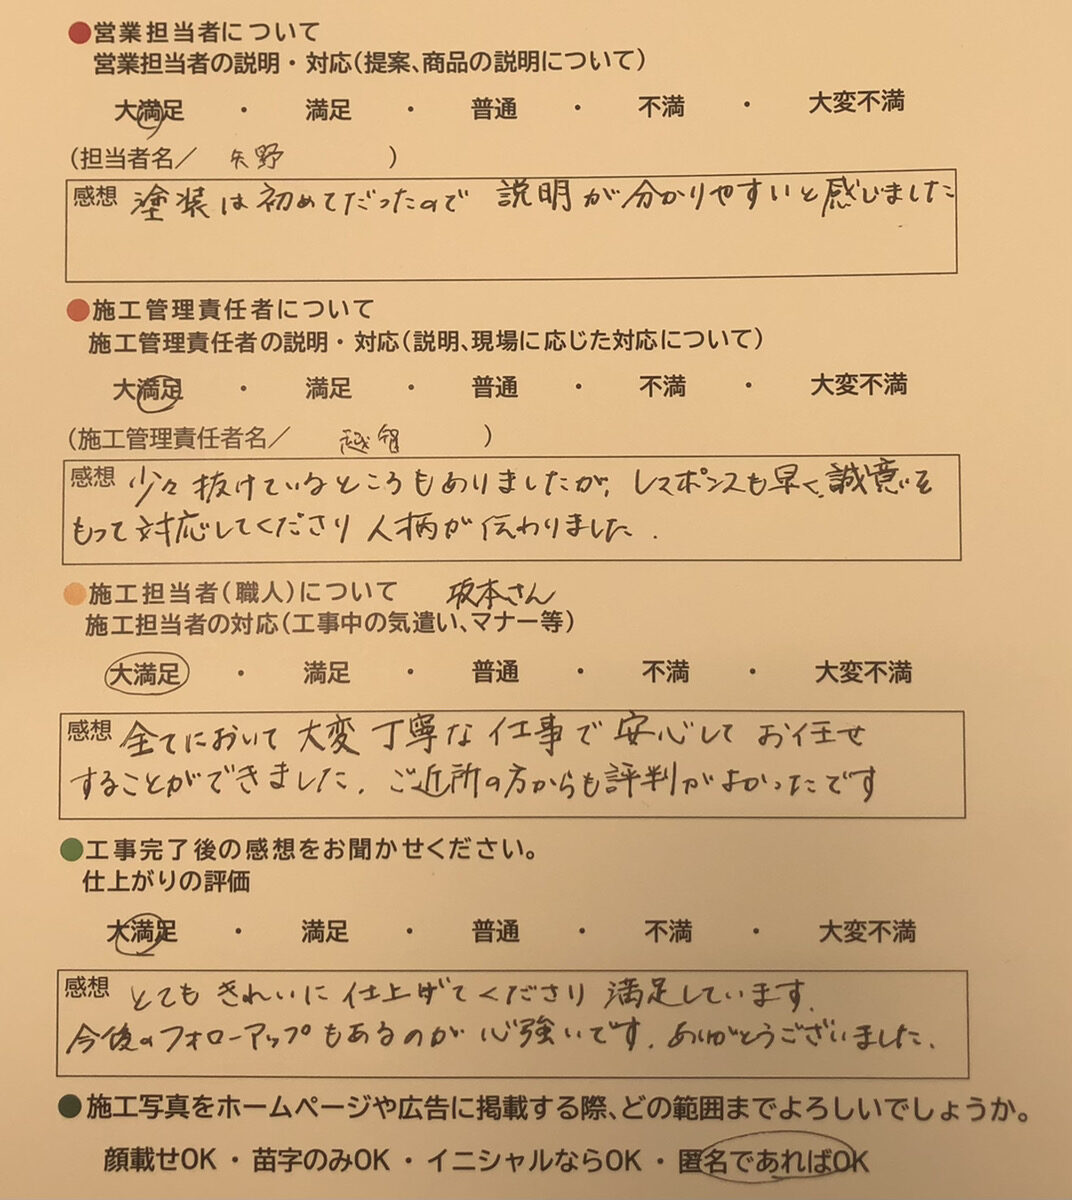 ●営業担当者について
営業担当者の説明・対応(提案、商品の説明について)
大満足 ・ 満足 ・ 普通 ・ 不満 ・ 大変不満
(担当者名／ 矢野 )
感想 塗装は初めてだったので 説明が分かりやすいと感じました
●施工管理責任者について
施工管理責任者の説明・対応(説明、現場に応じた対応について)
大満足 ・ 満足 ・ 普通 ・ 不満 ・ 大変不満
(施工管理責任者名／ 越智 )
感想 少々抜けているところもありましたが、レスポンスも早く、誠意を
もって対応してくださり人柄が伝わりました.
●施工担当者(職人)について 坂本さん
施工担当者の対応(工事中の気遣い、マナー等)
大満足 ・ 満足 ・ 普通 ・ 不満 ・ 大変不満
感想 全てにおいて大変丁寧な仕事で安心してお任せ
することができました. ご近所の方からも評判がよかったです
●工事完了後の感想をお聞かせください。
仕上がりの評価
大満足 ・ 満足 ・ 普通 ・ 不満 ・ 大変不満
感想 とてもきれいに仕上げてくださり満足しています.
今後のフォローアップもあるのが心強いです. ありがとうございました.
●施工写真をホームページや広告に掲載する際、どの範囲までよろしいでしょうか。
顔載せOK・苗字のみOK・イニシャルならOK・匿名であればOK